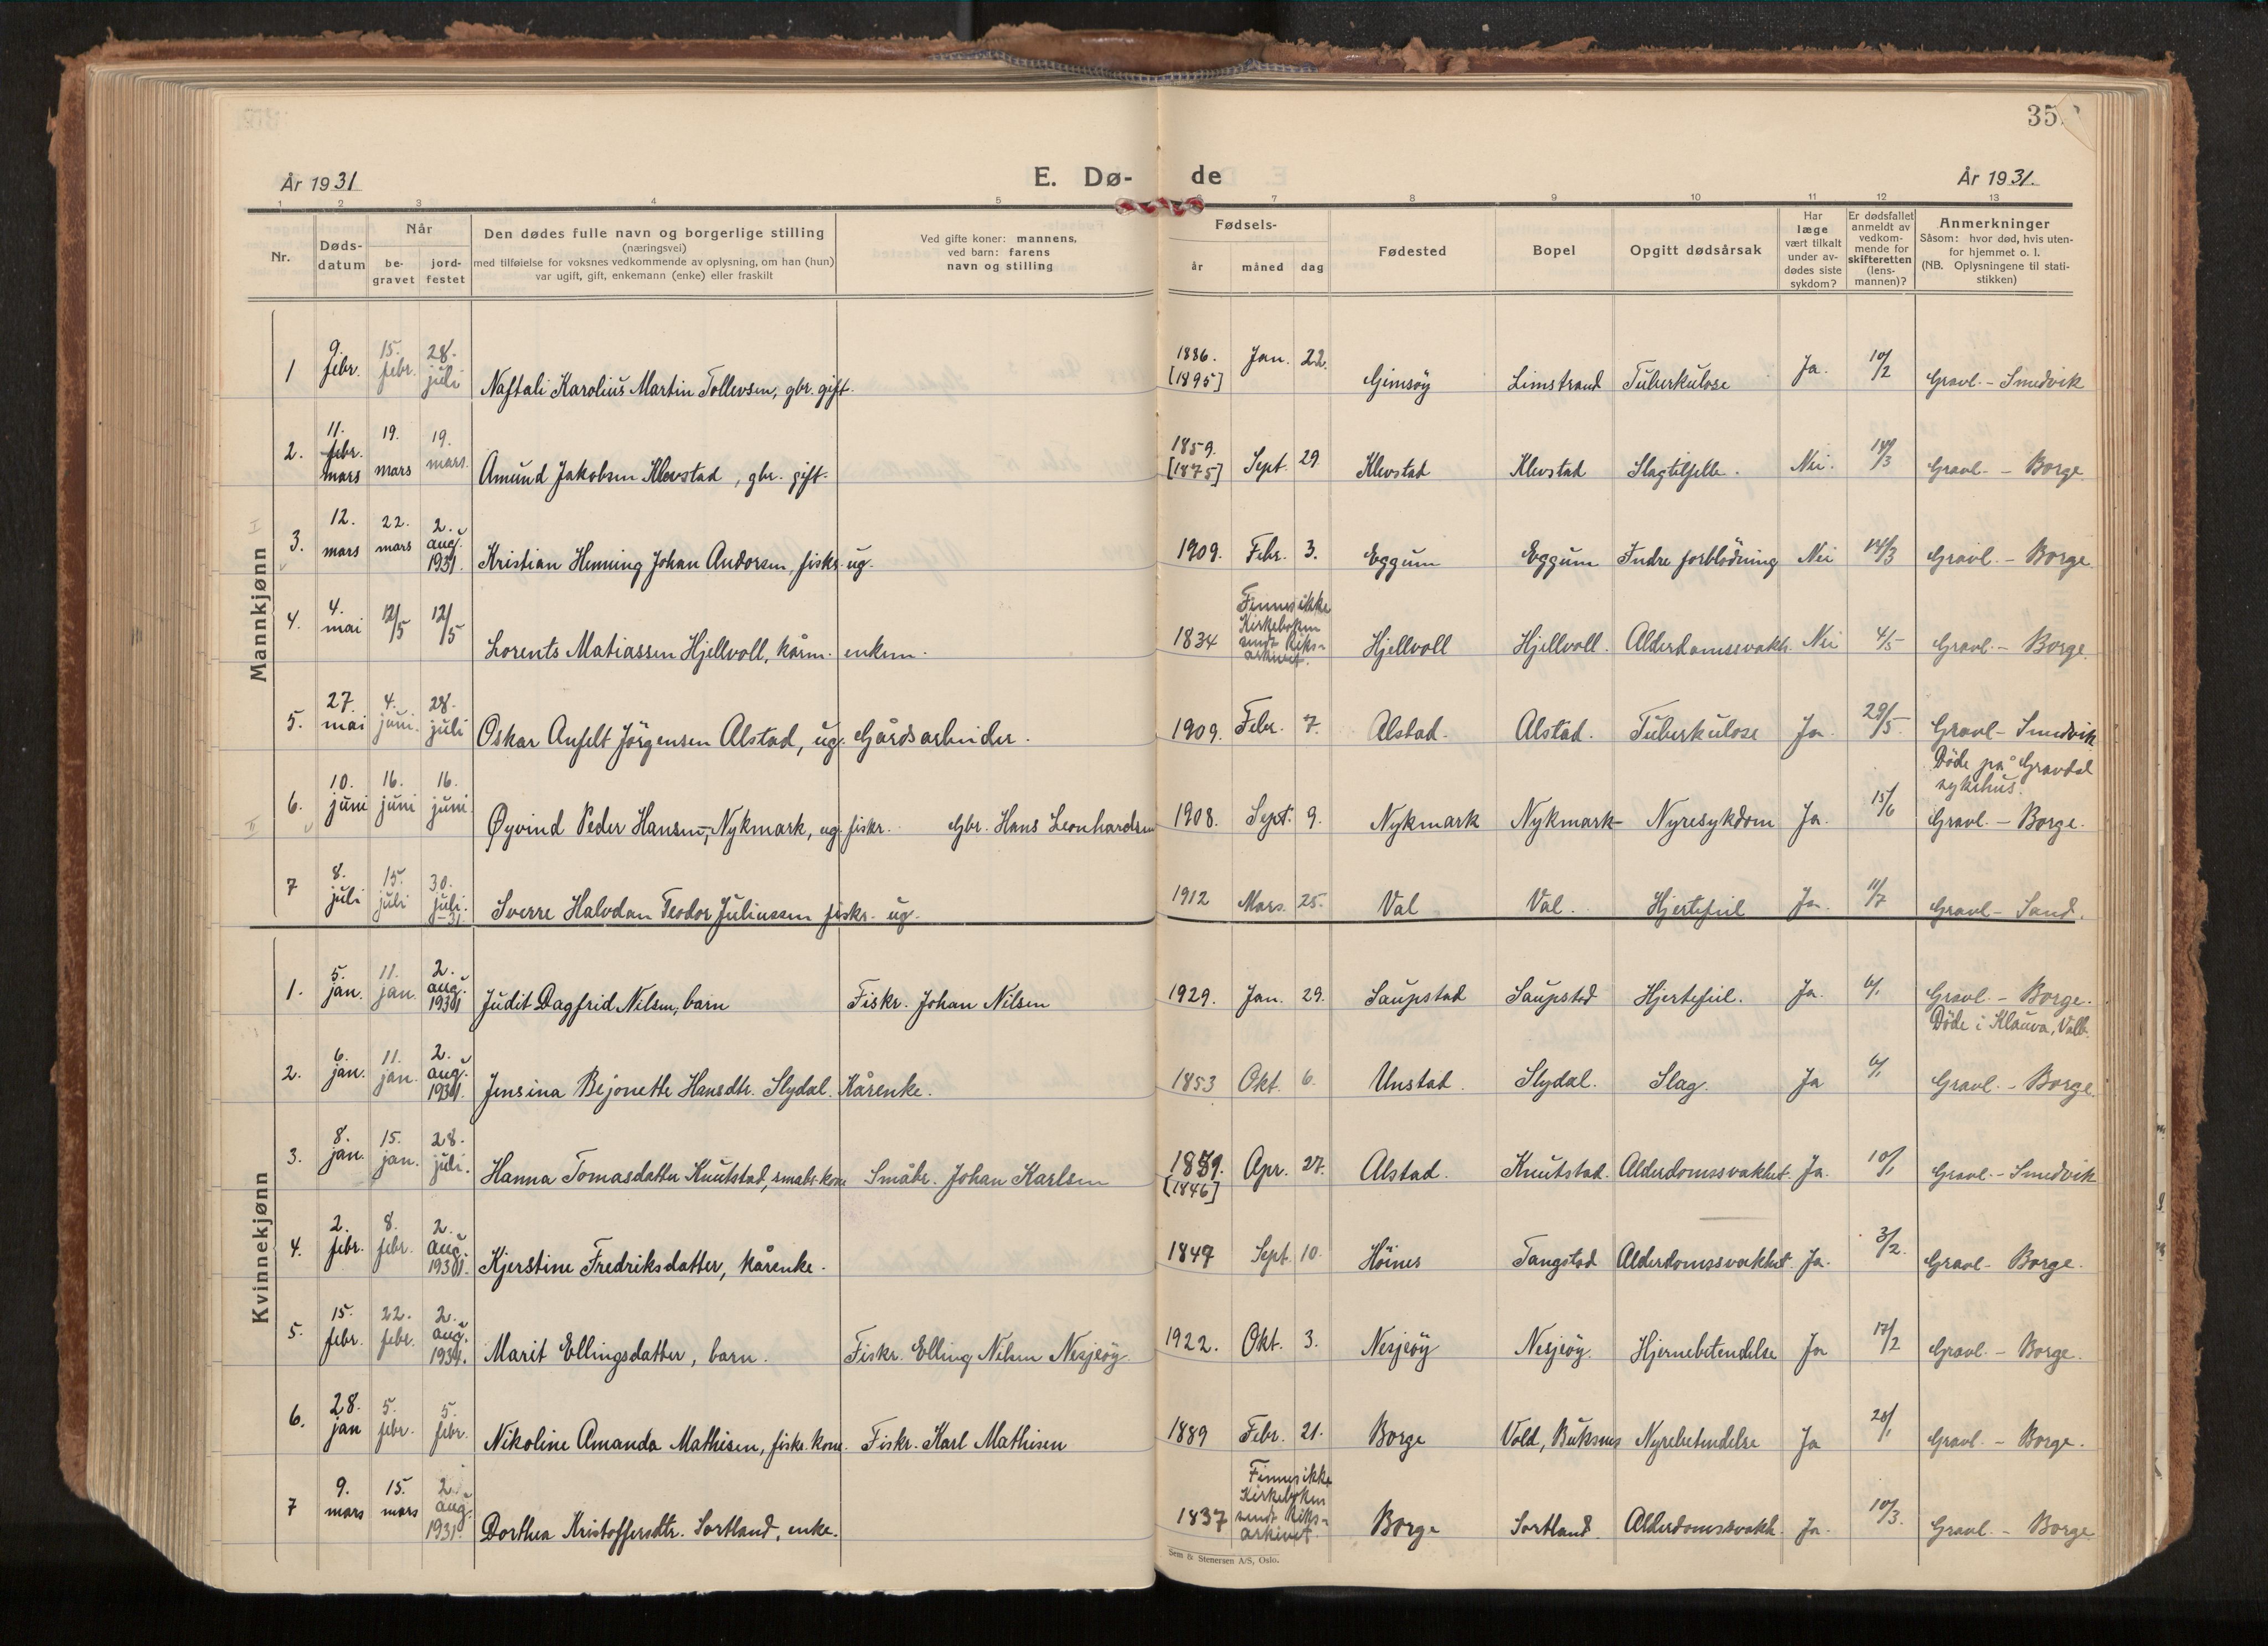 35
År 1931
E. Dø- de
År 1931.
1 2 3 4 5 6 7 8 9 10 11 12 13
Nr.
Døds-
datum
Når
be-
gravet
jord-
festet
Den dødes fulle navn og borgerlige stilling
(næringsvei)
med tilføielse for voksnes vedkommende av oplysning, om han (hun)
var ugift, gift, enkemann (enke) eller fraskilt
Ved gifte koner: mannens,
ved barn: farens
navn og stilling
Fødsels-
år måned dag
Fødested
Bopel
Opgitt dødsårsak
Har
læge
vært tilkalt
under av-
dødes siste
sykdom?
Er dødsfallet
anmeldt av
vedkom-
mende for
skifteretten
(lens-
mannen)?
Anmerkninger
Såsom: hvor død, hvis uten-
for hjemmet o. l.
(NB. Oplysningene til stati-
stikken)
Mannkjønn
1 9. febr. 15. febr. 28. juli Naftali Karolius Martin Tollevsen, gbr. gift. 1886. [1895] Jan. 22. Gimsöy Limstrand Tuberkulose Ja. 10/2 Gravl. - Smedvik
2. 11. febr. mars 19. mars 19. mars. Amund Jakobsen Klevstad, gbr. gift. 1859. [1875] Sept. 29. Klevstad Klevstad Slagtilfelle. Nei. 14/3 Gravl. - Borge.
3. 12. mars 22. mars 2. aug. 1931. Kristian Henning Johan Andorsen, fiskr. ug. 1909. Febr. 3. Eggum Eggum Indre forblödning Nei 14/3 Gravl. - Borge.
4. 4. mai 12/5 12/5 Lorents Matiassen Hjellvoll, kårm. enkem. 1834 Finnes ikke Kirkeboken sendt Riks-arkivet. Hjellvoll Hjellvoll. Alderdomssvakh. Nei 4/5 Gravl. - Borge.
5. 27. mai 4. juni. 28. juli Oskar Anfelt Jörgensen Alstad, ug. Gårdsarbeider. 1909. Febr. 7. Alstad. Alstad. Tuberkulose Ja. 29/5 Gravl - Smedvik
Döde på Gravdal sykehus.
6. 10. juni 16. juni 16. juni Øyvind Peder Hansen, Nykmark, ug. fiskr. Gbr. Hans Leonhardsen 1908. Sept. 9. Nykmark Nykmark Nyresykdom Ja. 15/6 Gravl. - Borge.
7 8. juli 15. juli 30. juli. -31. Sverre Halvdan Teodor Juliussen fiskr. ug. 1912 Mars. 25. Val Val. Hjertefeil Ja. 11/7 Gravl - Sand.
Kvinnekjønn
1. 5. jan. 11. jan. 2. aug. 1931 Judit Dagfrid Nilsen, barn Fiskr. Johan Nilsen 1929. Jan. 29. Saupstad Saupstad Hjertefeil. Ja. 6/1 Gravl. - Borge.
Döde i Klauva, Valb.
2. 6. jan. 11. jan. 2. aug. 1931. Jensina Bejonette Hansdtr. Slydal. Kårenke. 1853 Okt. 6. Unstad. Slydal. Slag. Ja 6/1 Gravl. - Borge.
3. 8. jan. 15. jan. 28. juli. Hanna Tomasdatter Knutstad, småbr. kone Småbr. Johan Karlsen 1859. [1846] Apr. 27. Alstad. Knutstad. Alderdomssvakhet. Ja. 10/1 Gravl. - Smedvik
4. 2. febr. 8. febr. 2. aug. 1931. Kjerstine Fredriksdatter, kårenke. 1847 Sept. 10. Höines Tangstad Alderdomssvakhet. Ja. 3/2. Gravl - Borge.
5. 15. febr. 22. febr. 2. aug. 1931. Marit Ellingsdatter, barn. Fiskr. Elling Nilsen Nesjeöy. 1922. Okt. 3. Nesjeöy Nesjeöy. Hjernebetendelse Ja 17/2 Gravl. - Borge.
6. 28. jan 5. febr. 5. febr. Nikoline Amanda Mathisen, fiskr. kone. Fiskr. Karl Mathisen 1889 Febr. 21. Borge Vold, Buksnes Nyrebetendelse Ja 28/1 Gravl. - Borge.
7 9. mars 15. mars 2. aug. 1931. Dorthea Kristoffersdtr. Sortland, enke. 1837 Finnes ikke Kirkeboken sendt Riks-arkivet. Borge Sortland. Alderdomssvakh. Ja. 10/3. Gravl. - Borge.
Sem & Stenersen A/S, Oslo.